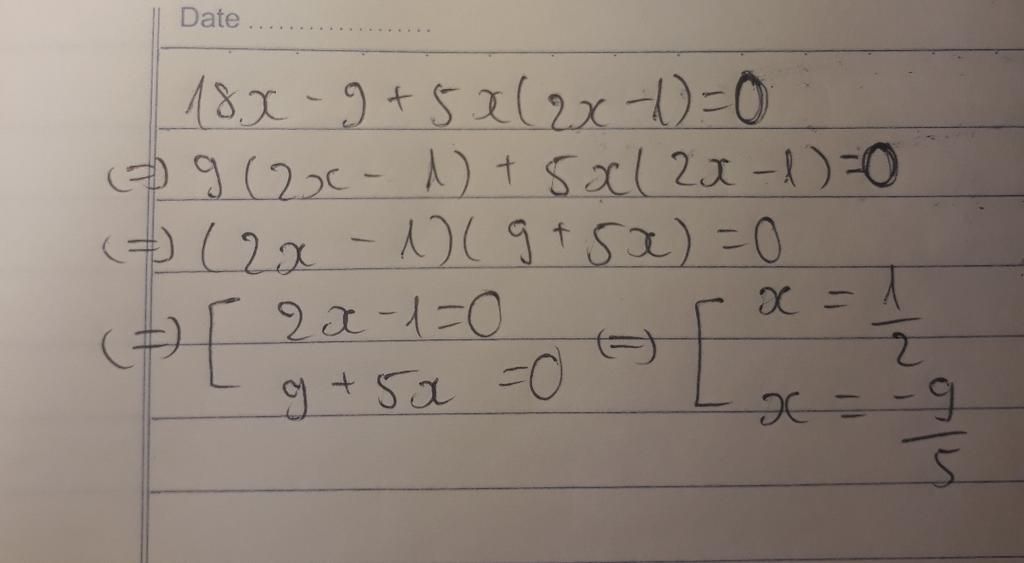 Date ....................
18x - 9 + 5x(2x - 1) = 0
(=) 9(2x - 1) + 5x(2x - 1) = 0
(=) (2x - 1)(9 + 5x) = 0
(=) [ 2x - 1 = 0 (=) [ x = 1/2
9 + 5x = 0 x = -9/5